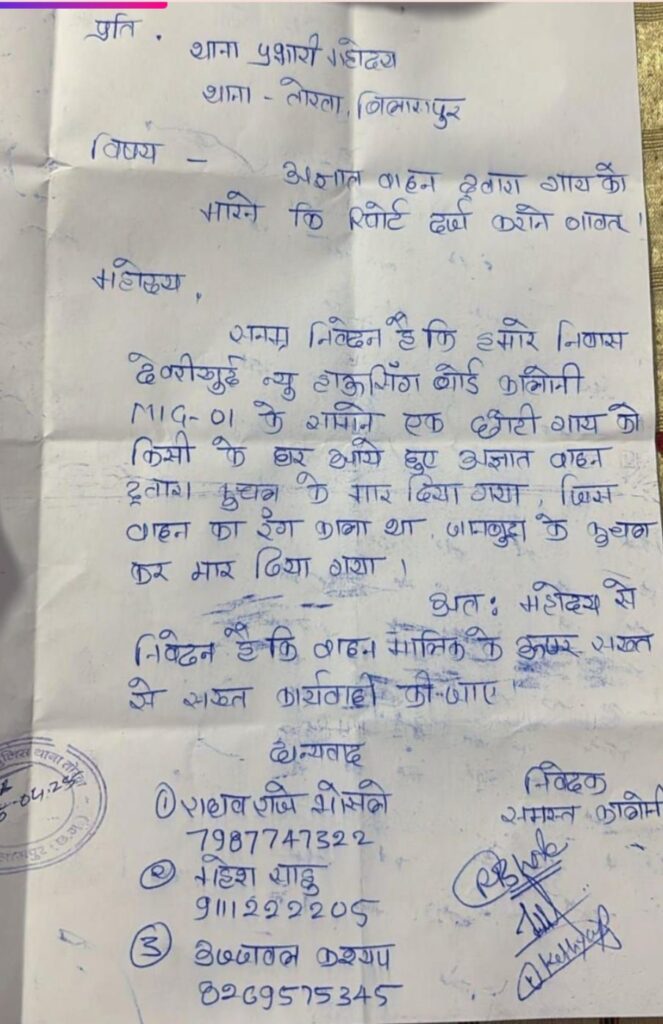 प्रति,
थाना प्रभारी महोदय
थाना - तोरवा, बिलासपुर
विषय -
अज्ञात वाहन द्वारा गाय को
मारने कि रिपोर्ट दर्ज कराने बाबत।
महोदय,
सनम्र निवेदन है कि हमारे निवास
देवरीखुर्द न्यु हाऊसिंग बोर्ड कालोनी
MIG-01 के सामने एक छोटी गाय को
किसी के घर आये हुए अज्ञात वाहन
द्वारा कुचल के मार दिया गया, जिस
वाहन का रंग काला था, जानबुझ के कुचल
कर मार दिया गया।
अत: महोदय से
निवेदन है कि वाहन मालिक के ऊपर सख्त
से सख्त कार्यवाही की जाए।
धन्यवाद
① राघव राजे भोसले
7987747322
② महेश साहु
9111222205
③ उज्जवल कश्यप
8269575345
निवेदक
समस्त कालोनी